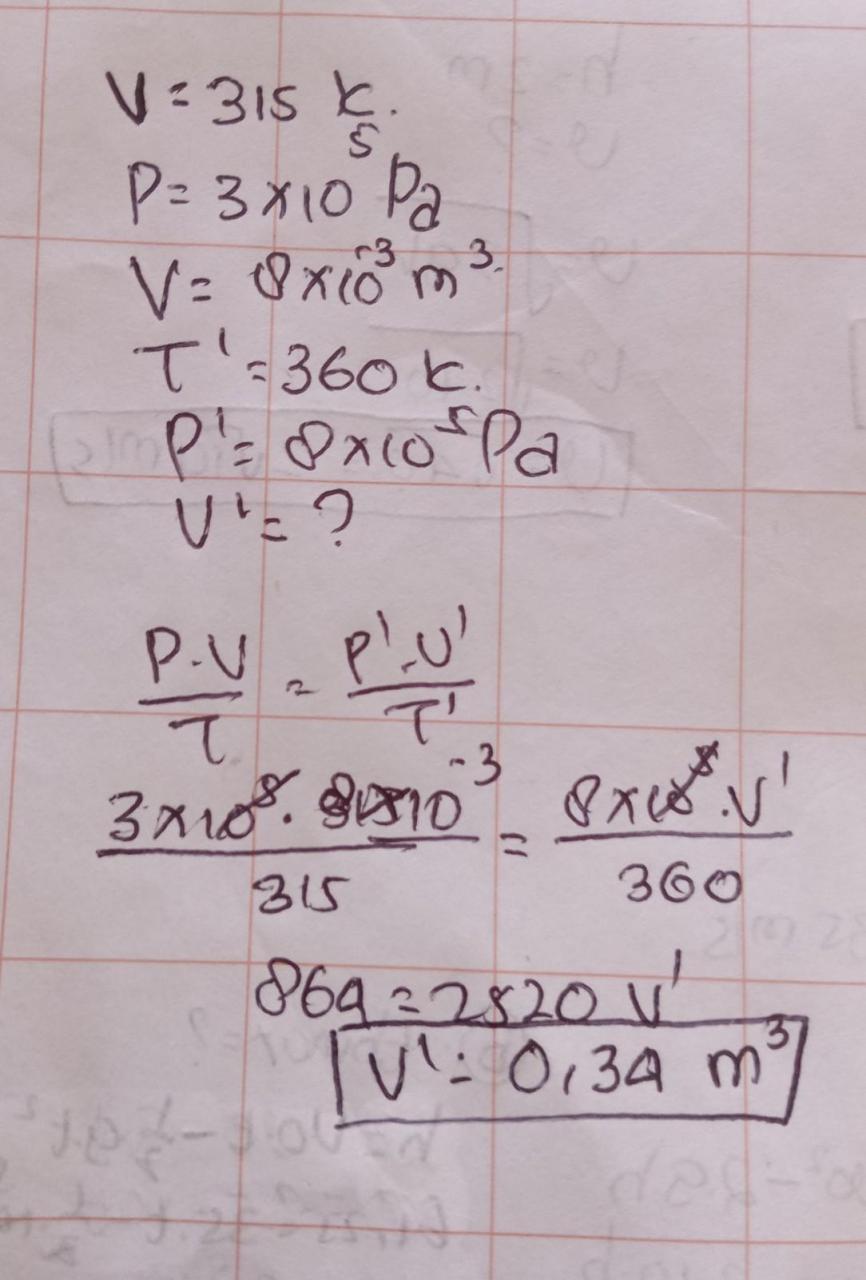 V = 315 K.
P = 3 x 10⁵ Pa
V = 8 x 10⁻³ m³.
T' = 360 K.
P' = 8 x 10⁵ Pa
V' = ?
P.V / T = P'.V' / T'
3 x 10⁵ . 8 x 10⁻³ / 315 = 8 x 10⁵ . V' / 360
864 = 2520 V'
V' = 0,34 m³